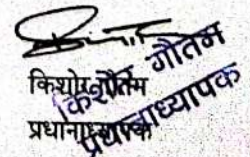 किशोर गौतम
प्रधानाध्यापक
किशोर गौतम
प्रधानाध्यापक